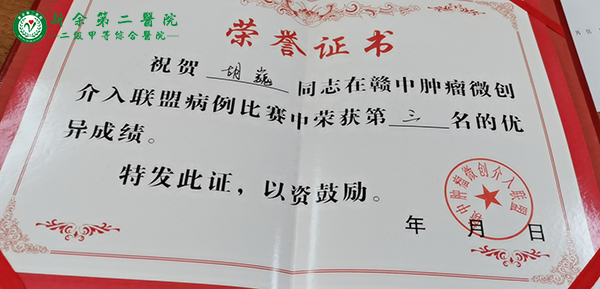 新余第二醫院
二级甲等综合醫院
荣誉证书
祝贺 胡巍 同志在赣中肿瘤微创
介入联盟病例比赛中荣获第 三 名的优
异成绩。
特发此证，以资鼓励。
赣中肿瘤微创介入联盟
年 月 日